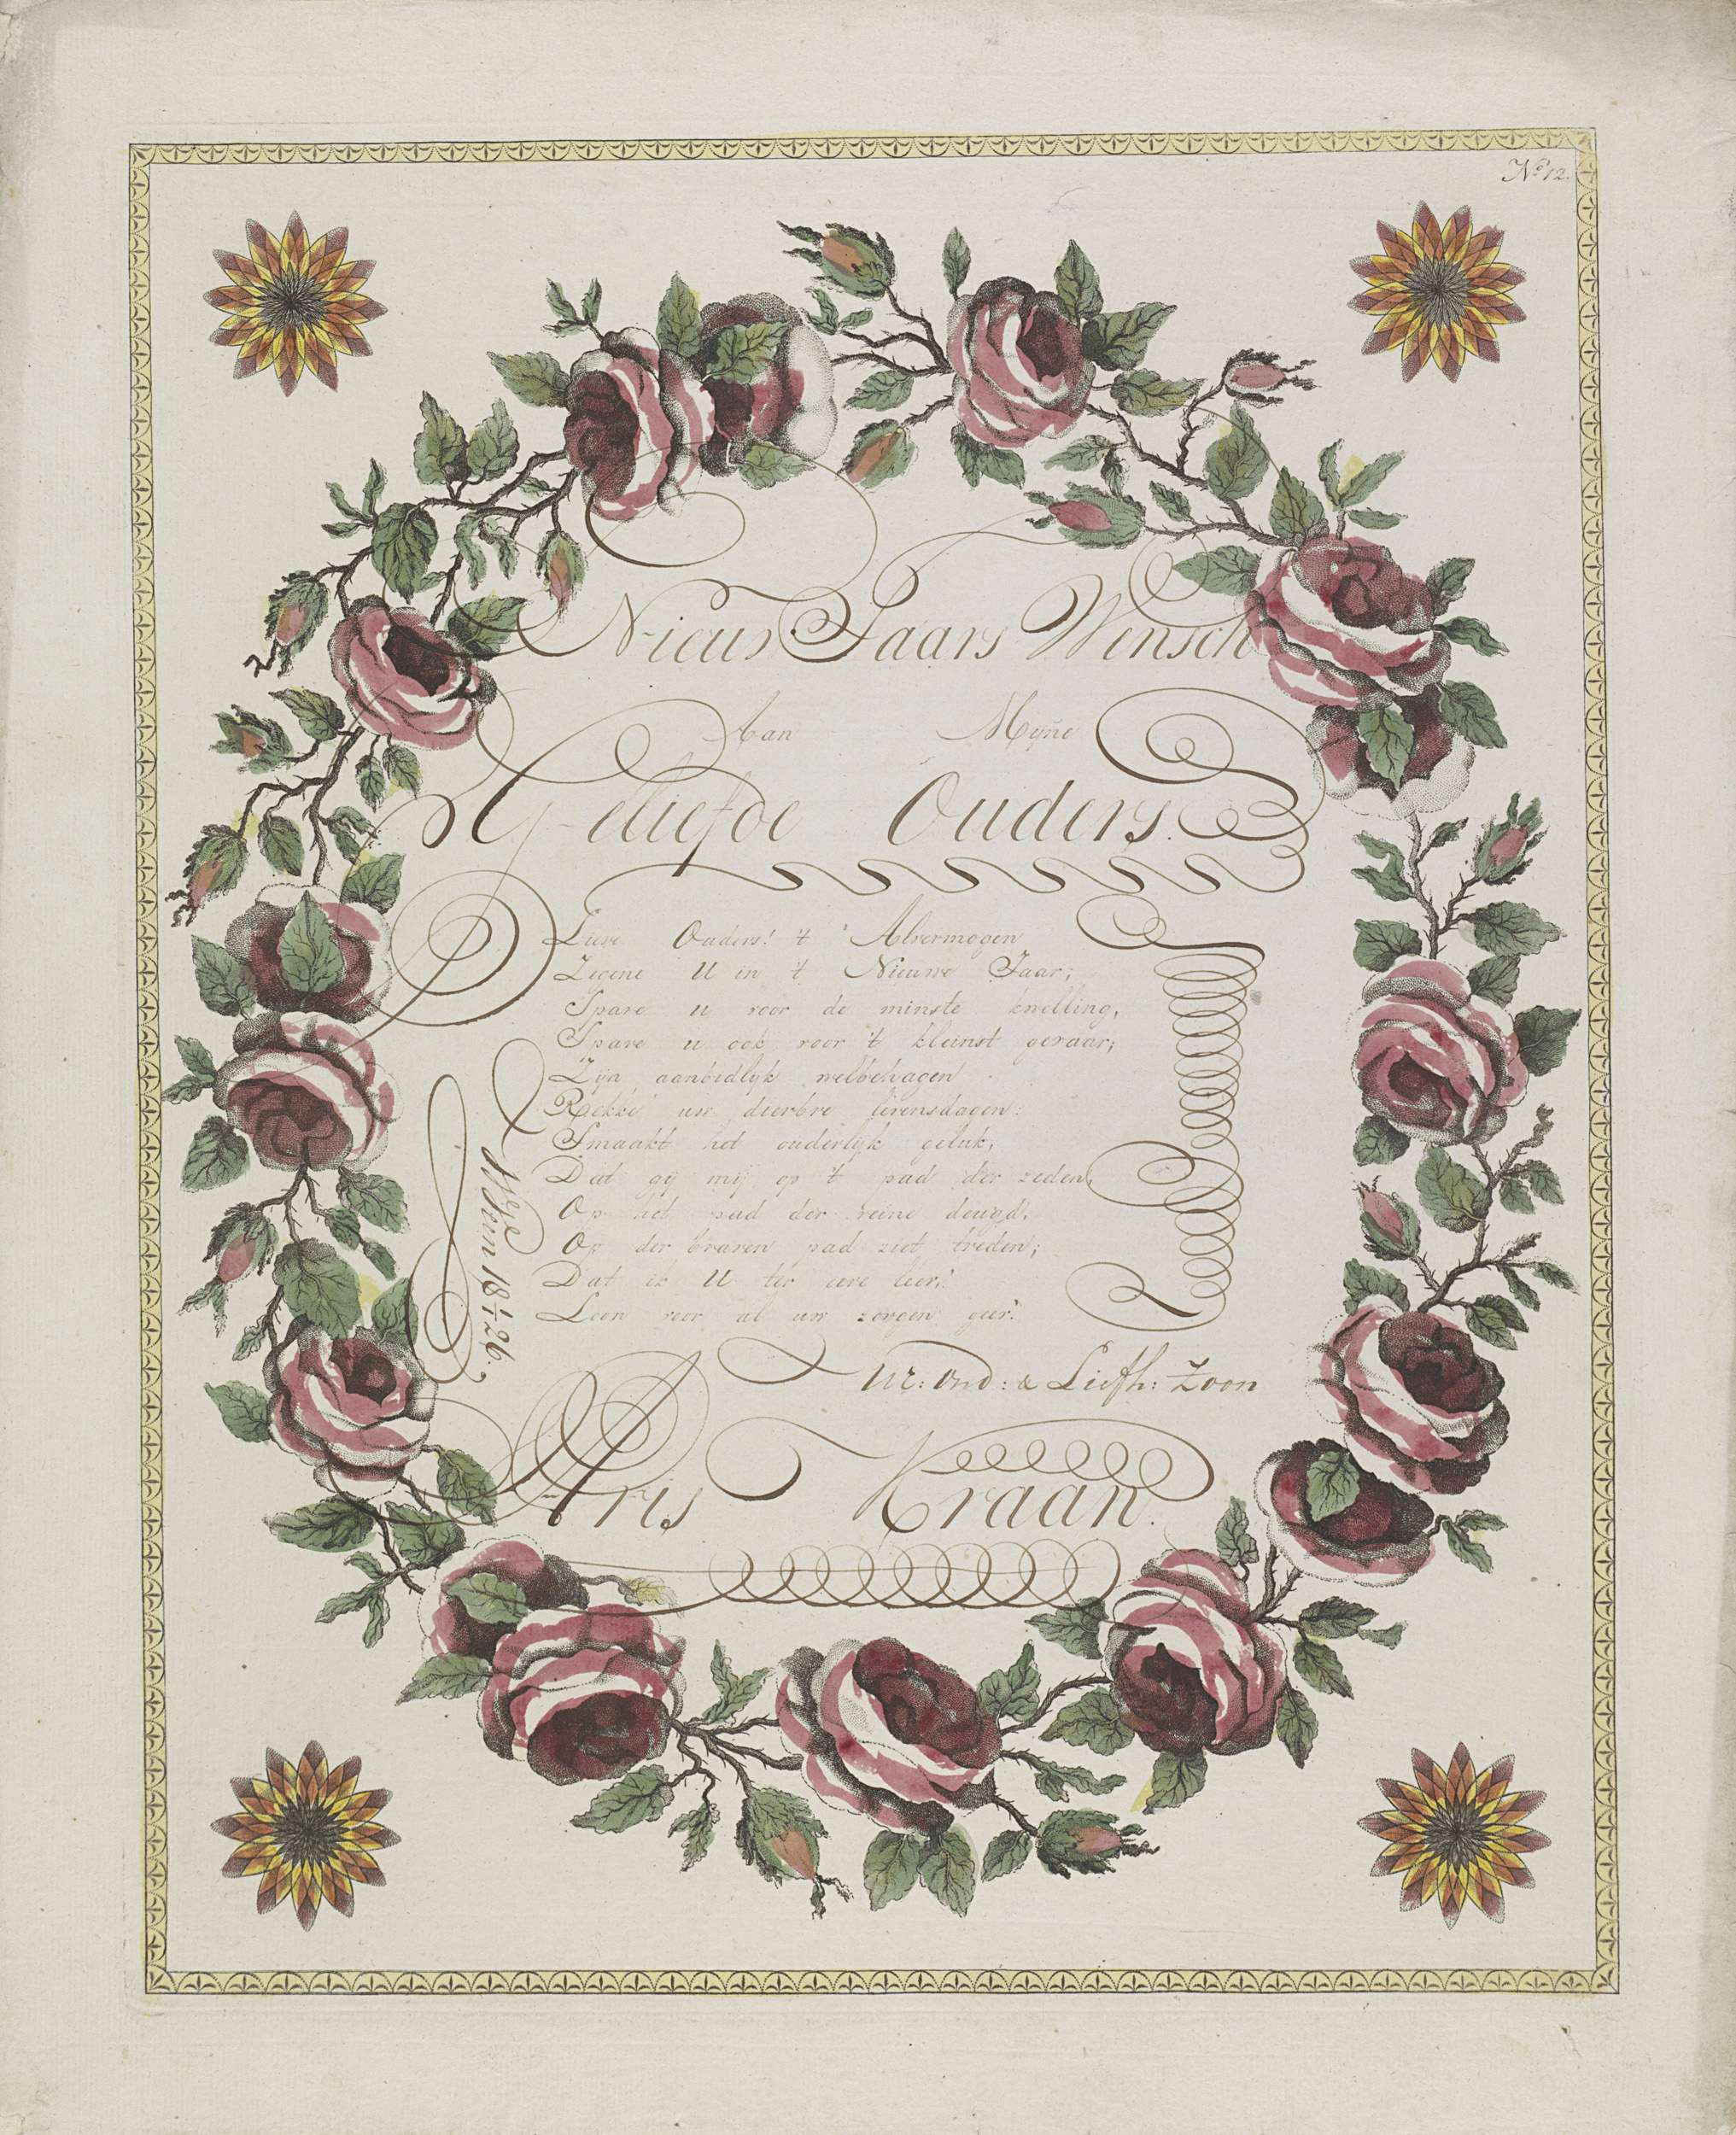 No 12.
Nieus Jaars Wensch
Aan Myne
Geliefde Ouders.
Lieve Ouders! 't Alvermogen
Zegene U in 't Nieuwe Jaar;
Spare u voor de minste kwelling,
Spare u ook voor 't kleinst gevaar;
Zijn aanbidlijk welbehagen
Rekke uw dierbre levensdagen:
Smaakt het ouderlyk geluk,
Dat gy mij op 't pad der zeden,
Op het pad der reine deugd,
Op der braven pad ziet treden;
Dat ik U ter eere leev'!
Loon voor al uw zorgen geev'.
Uw: Ond: & Liefh: Zoon
Aris Kraan.
18 1/1 26.